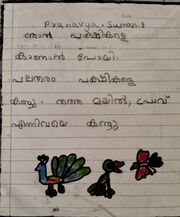 Pranavya. Suman. S
ഞാൻ പക്ഷികളെ
കാണാൻ പോയി.
പലതരം പക്ഷികളെ
കണ്ടു. തത്ത മയിൽ, പ്രാവ്
എന്നിവയെ കണ്ടു